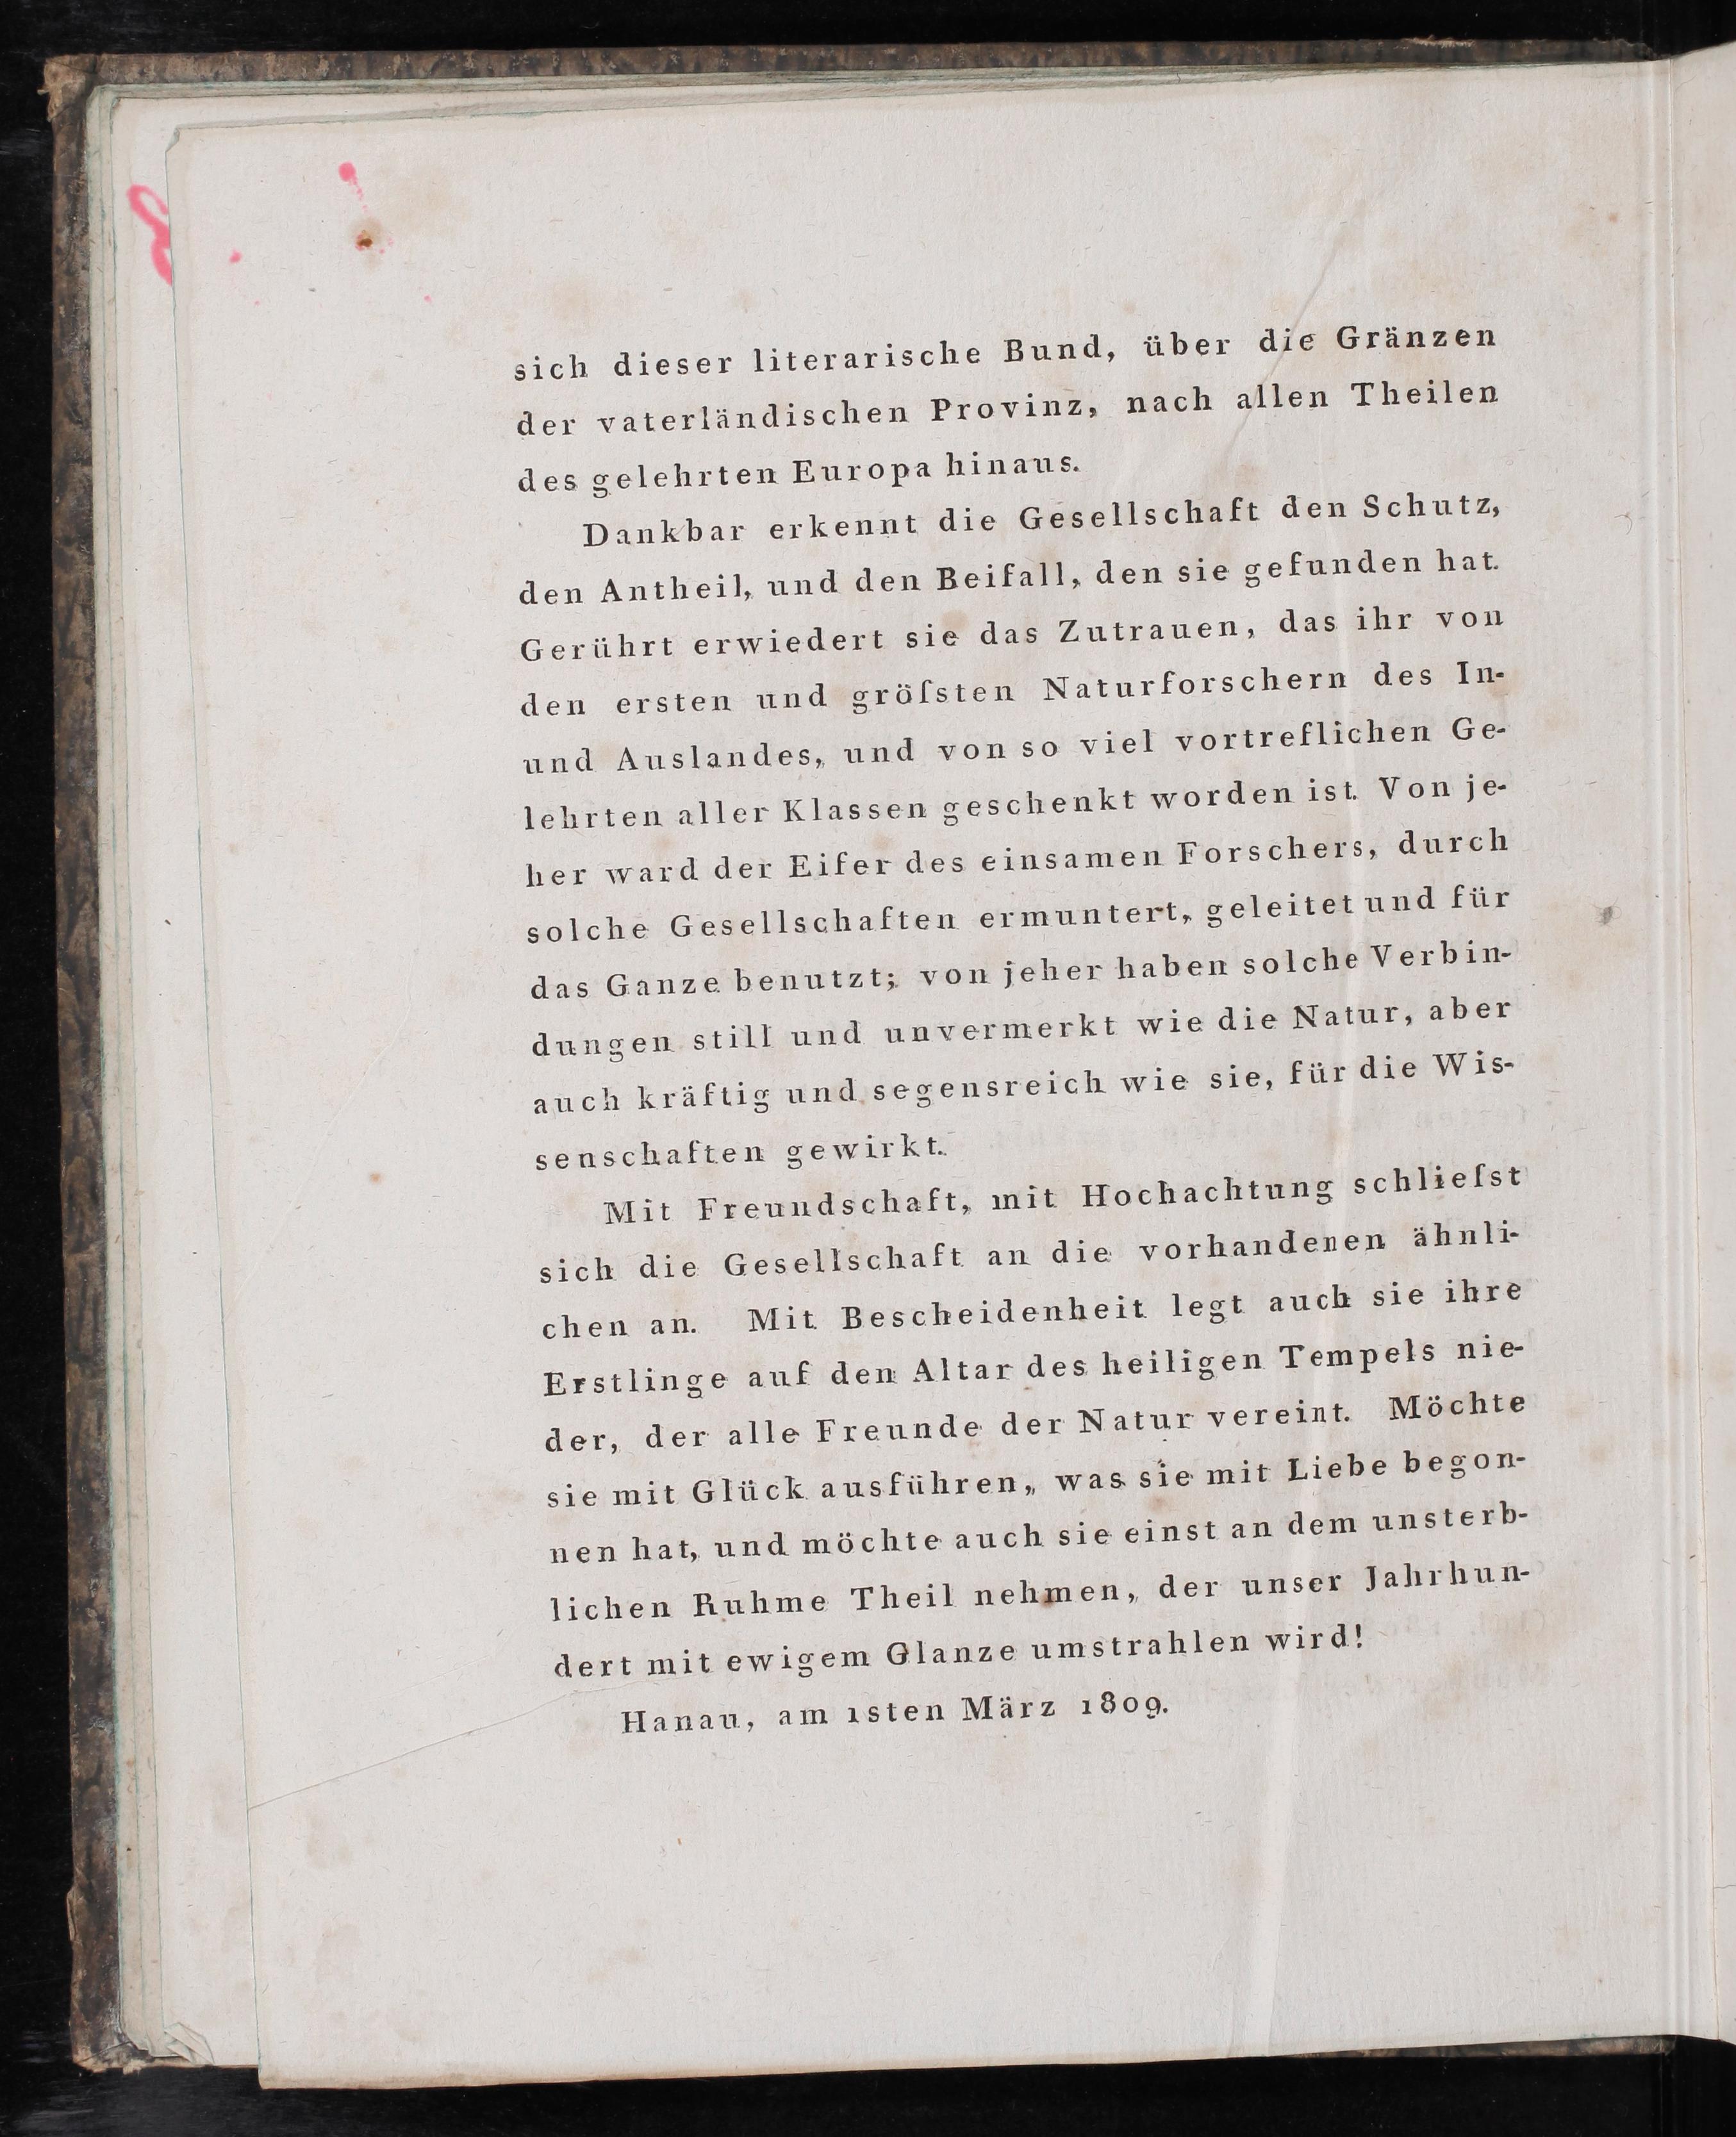 sich dieser literarische Bund, über die Gränzen
der vaterländischen Provinz, nach allen Theilen
des gelehrten Europa hinaus.
Dankbar erkennt die Gesellschaft den Schutz,
den Antheil, und den Beifall, den sie gefunden hat.
Gerührt erwiedert sie das Zutrauen, das ihr von
den ersten und gröſsten Naturforschern des In-
und Auslandes, und von so viel vortreflichen Ge-
lehrten aller Klassen geschenkt worden ist. Von je-
her ward der Eifer des einsamen Forschers, durch
solche Gesellschaften ermuntert, geleitet und für
das Ganze benutzt; von jeher haben solche Verbin-
dungen still und unvermerkt wie die Natur, aber
auch kräftig und segensreich wie sie, für die Wis-
senschaften gewirkt.
Mit Freundschaft, mit Hochachtung schlieſst
sich die Gesellschaft an die vorhandenen ähnli-
chen an. Mit Bescheidenheit legt auch sie ihre
Erstlinge auf den Altar des heiligen Tempels nie-
der, der alle Freunde der Natur vereint. Möchte
sie mit Glück ausführen, was sie mit Liebe begon-
nen hat, und möchte auch sie einst an dem unsterb-
lichen Ruhme Theil nehmen, der unser Jahrhun-
dert mit ewigem Glanze umstrahlen wird!
Hanau, am 1sten März 1809.